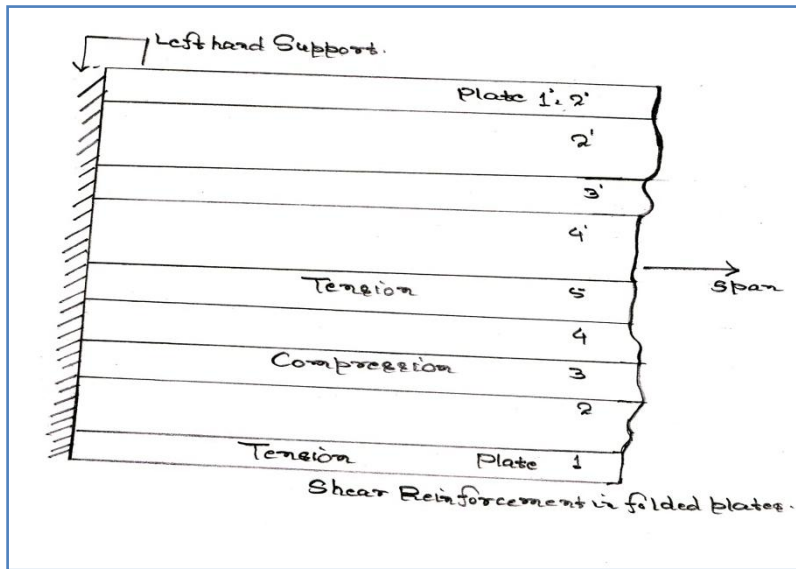 Left hand Support.
Plate 1'. 2'
2'
3'
4'
Tension 5
span
4
Compression 3
2
Tension Plate 1
Shear Reinforcement in folded plates.